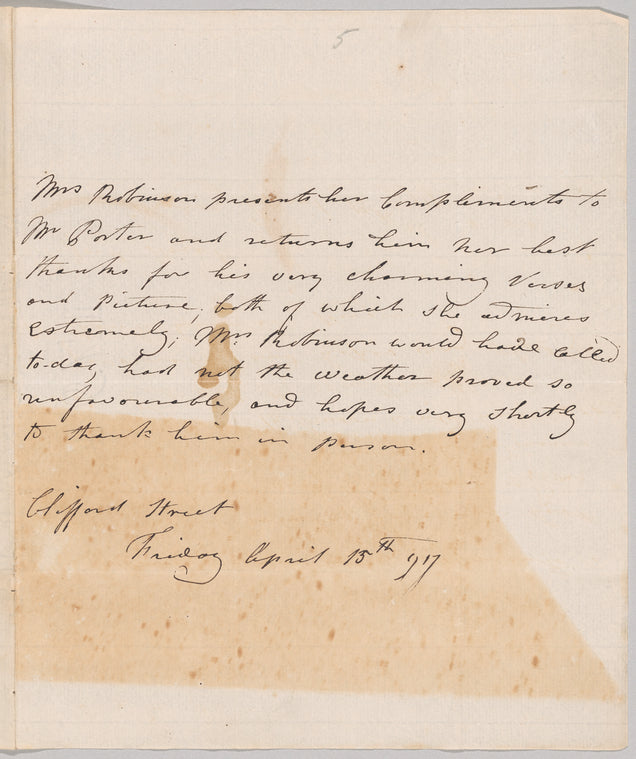 5
Mrs Robinson presents her Compliments to
Mr Porter and returns him her best
thanks for his very charming Verses
and Picture, both of which she admires
extremely; Mrs Robinson would have called
to-day, had not the weather proved so
unfavourable, and hopes very shortly
to thank him in person.
Clifford Street
Friday April 15th